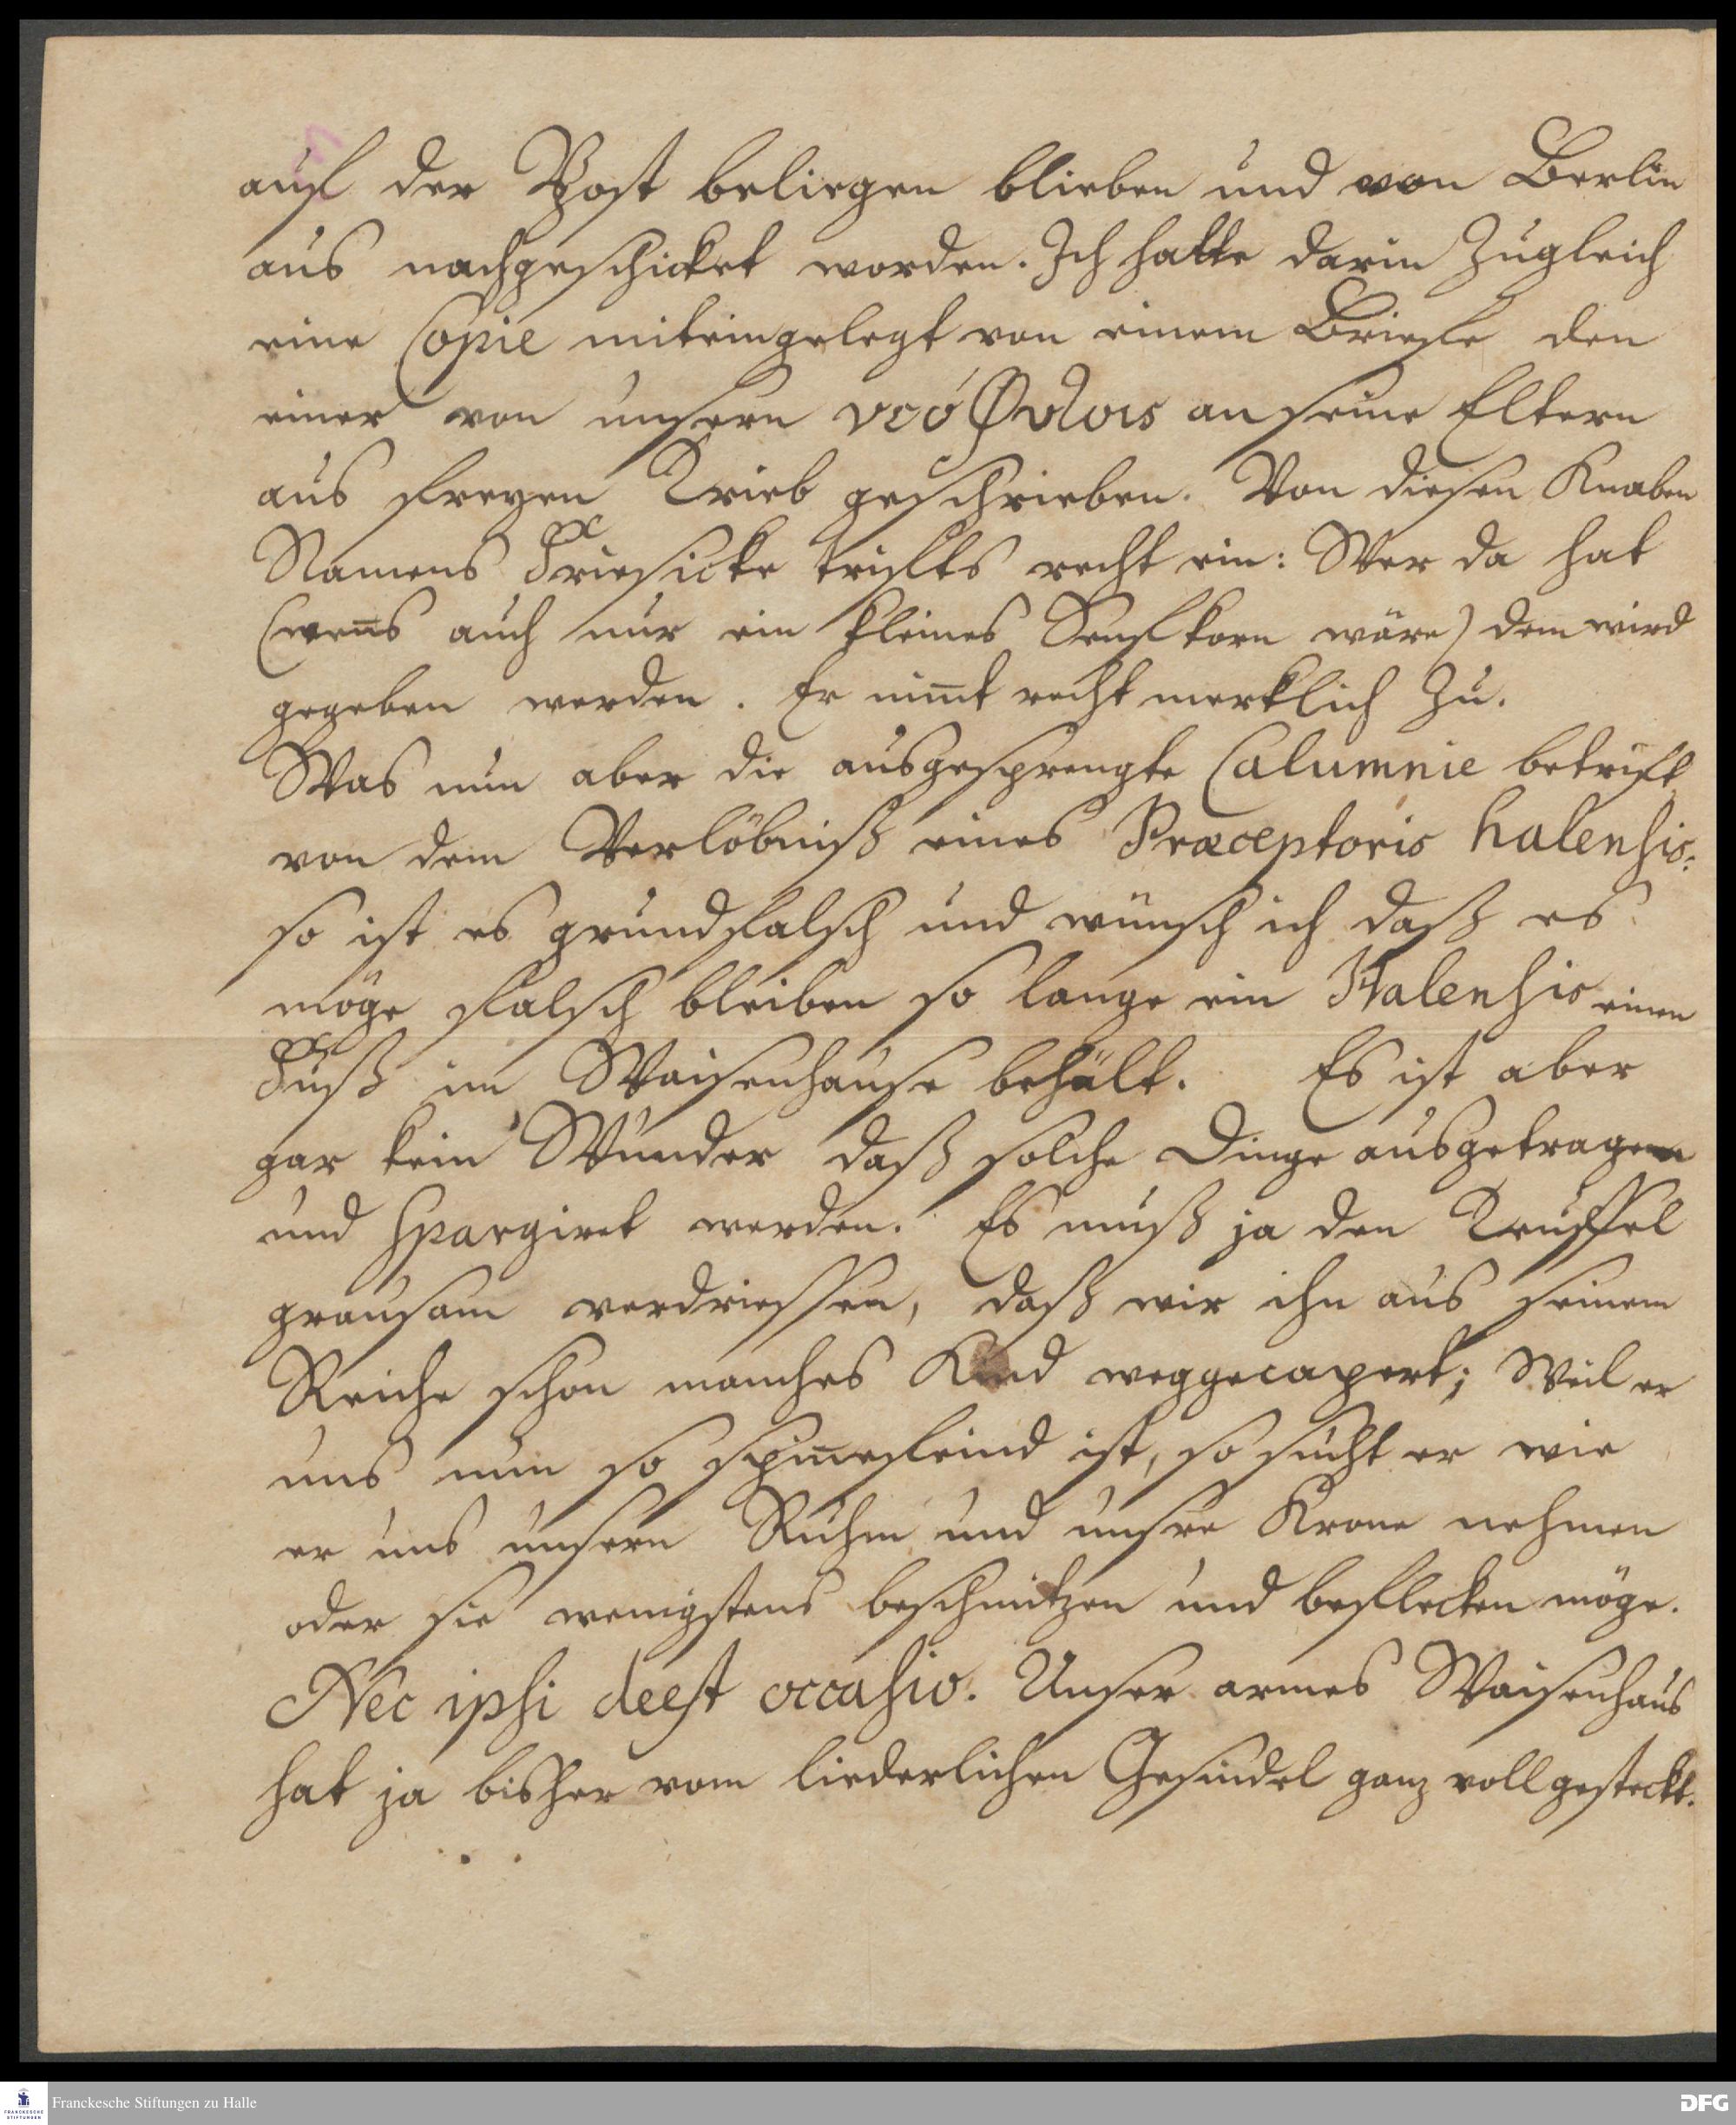 auf der Post beliegen blieben und von Berlin
aus nachgeschicket worden. Ich hatte darin zugleich
eine Copie miteingelegt von einem Briefe den
einer von unsern νεοφύτοις an seine Eltern
aus freyen Trieb geschrieben. Von diesen Knaben
Namens Friesicke trifts recht ein: Wer da hat
(wen̅s auch nur ein kleines Senfkorn wäre) dem wird
gegeben werden. Er nim̅t recht merklich zu.
Was nun aber die ausgesprengte Calumnie betrift
von dem Verlöbniß eines Præceptoris halensis:
so ist es grundfalsch und wünsch ich daß es
möge falsch bleiben so lange ein Halensis einen
Fuß im Waisenhause behält. Es ist aber
gar kein Wunder daß solche Dinge ausgetragen
und spargiret werden. Es muß ja den Teuffel
grausam verdriessen, daß wir ihn aus seinem
Reiche schon manches Kind weggecapert; Weil er
uns nun so spin̅efeind ist, so sucht er wie
er uns unsern Ruhm und unsre Krone nehmen
oder sie wenigstens beschmitzen und beflecken möge.
Nec ipsi deest occasio. Unser armes Waisenhaus
hat ja bisher vom liederlichen Gesindel ganz voll gesteckt.
Franckesche Stiftungen zu Halle
FRANCKESCHE STIFTUNGEN
DFG